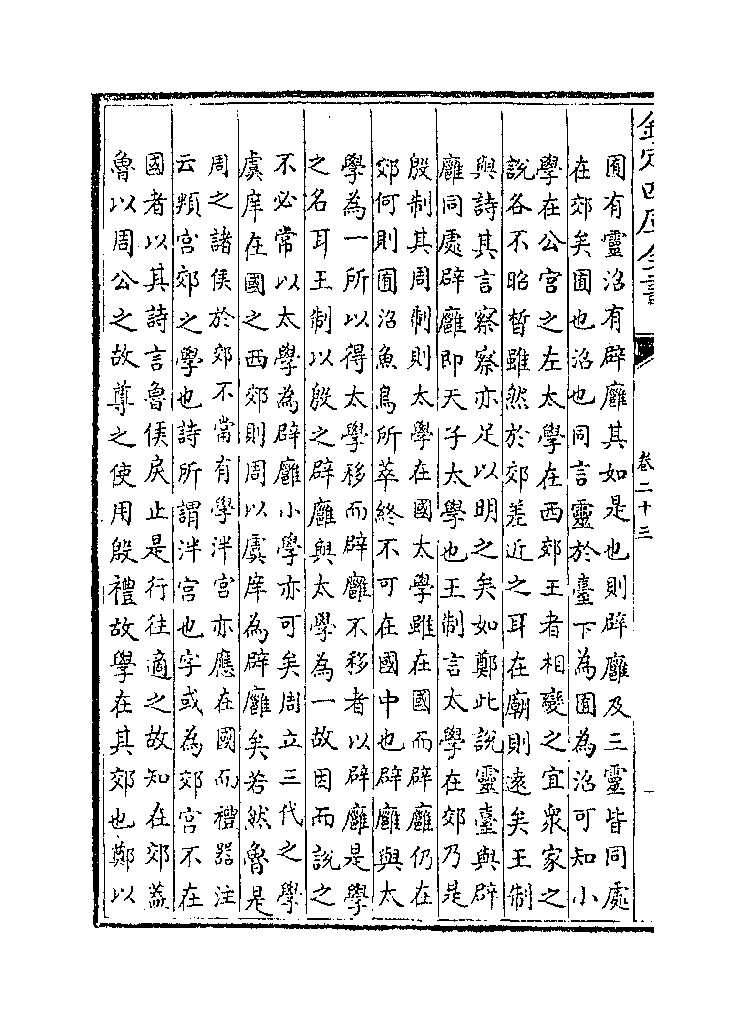 欽定四庫全書
卷二十三
囿有靈沼有辟廱其如是也則辟廱及三靈皆同處
在郊矣囿也沼也同言靈於臺下為囿為沼可知小
學在公宮之左太學在西郊王者相變之宜衆家之
說各不昭晳雖然於郊差近之耳在廟則遠矣王制
與詩其言察察亦足以明之矣如鄭此說靈臺與辟
廱同處辟廱即天子太學也王制言太學在郊乃是
殷制其周制則太學在國太學雖在國而辟廱仍在
郊何則囿沼魚鳥所萃終不可在國中也辟廱與太
學為一所以得太學移而辟廱不移者以辟廱是學
之名耳王制以殷之辟廱與太學為一故因而說之
不必常以太學為辟廱小學亦可矣周立三代之學
虞庠在國之西郊則周以虞庠為辟廱矣若然魯是
周之諸侯於郊不當有學泮宮亦應在國而禮器注
云頖宮郊之學也詩所謂泮宮也字或為郊宮不在
國者以其詩言魯侯戾止是行往適之故知在郊蓋
魯以周公之故尊之使用殷禮故學在其郊也鄭以